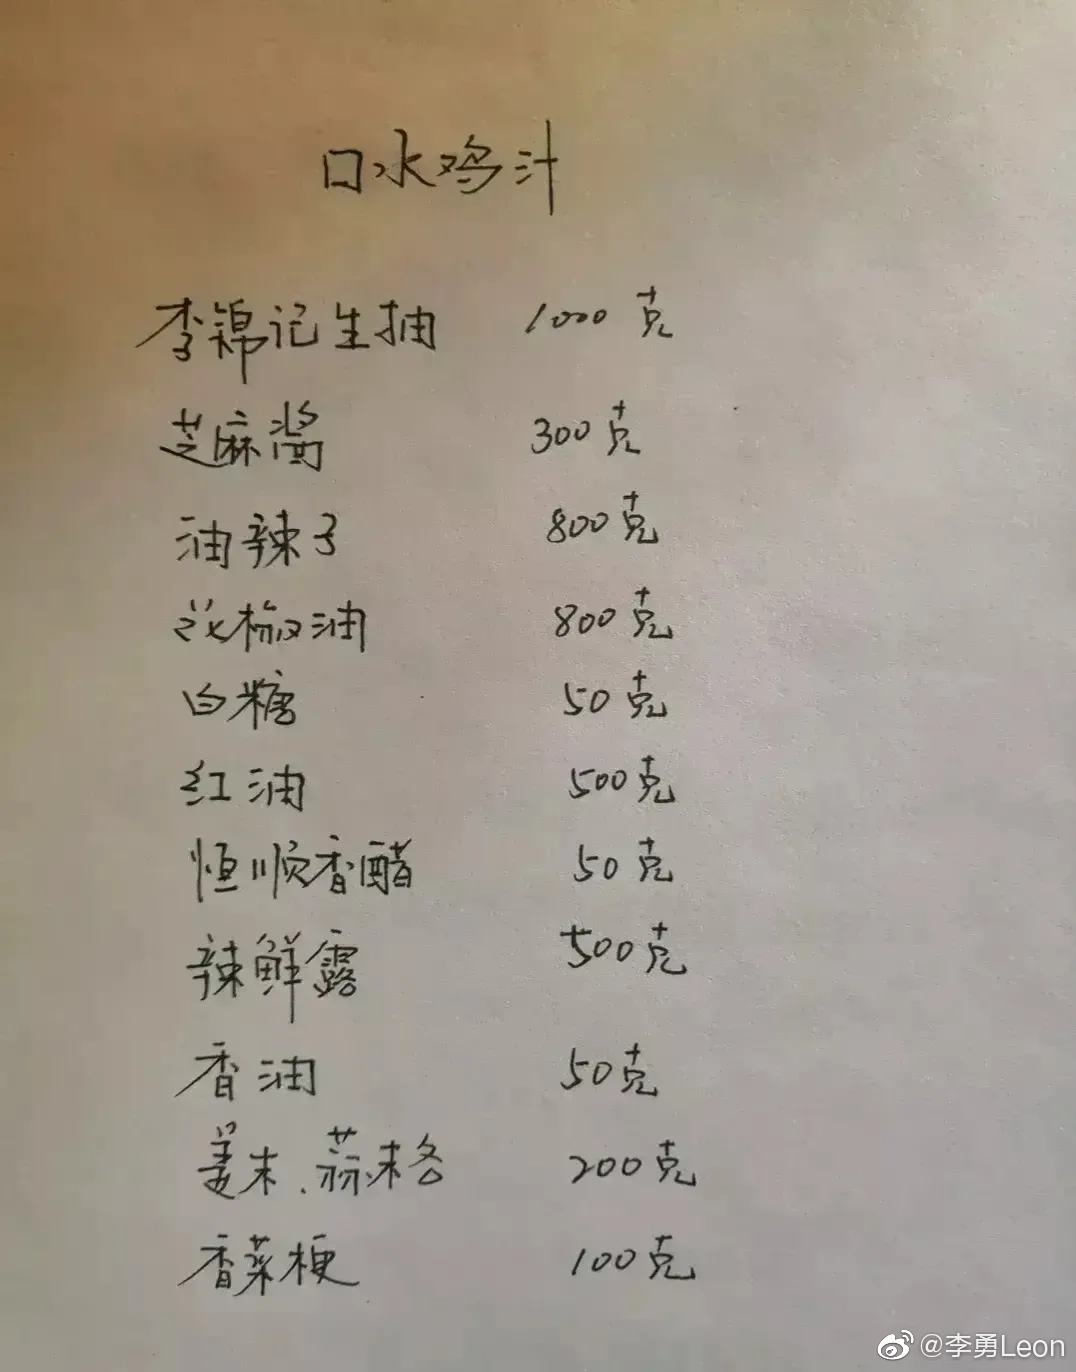 口水鸡汁
李锦记生抽 1000克
芝麻酱 300克
油辣子 800克
花椒油 800克
白糖 50克
红油 500克
恒顺香醋 50克
辣鲜露 500克
香油 50克
姜末、蒜末各 200克
香菜梗 100克
@李勇Leon